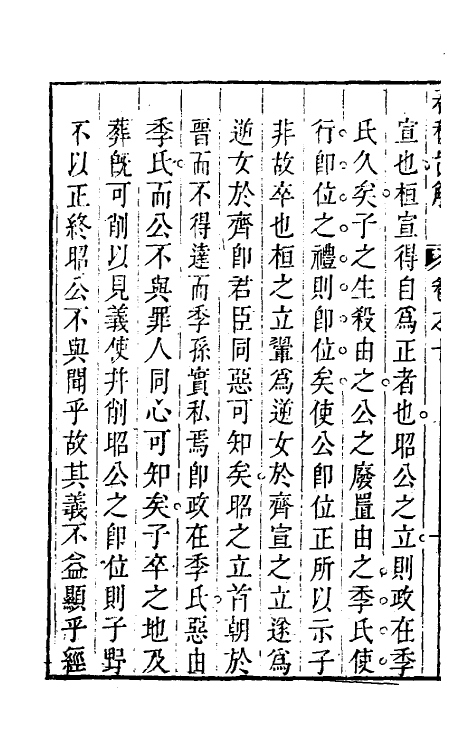 宣也桓宣得自為正者也昭公之立則政在季
氏久矣子之生殺由之公之廢置由之季氏使
行即位之禮則即位矣使公即位正所以示子
非故卒也桓之立翬為逆女於齊宣之立遂為
逆女於齊即君臣同惡可知矣昭之立首朝於
晉而不得達而季孫實私焉即政在季氏惡由
季氏而公不與罪人同心可知矣子卒之地及
葬旣可削以見義使幷削昭公之即位則子野
不以正終昭公不與聞乎故其義不益顯乎經